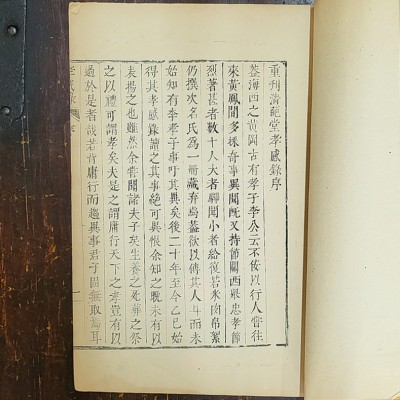 重刊清範堂孝感錄序
蓋海西之黃岡古有孝子李公云不佞以行人嘗往
來黃鳳間多採奇事異聞既又持節關西最忠孝節
烈著甚者數十人大者聞小者給復若米肉帛絮
仍撰次名氏為一冊藏弃焉蓋欲以傳其人而未
始知有李孝子事吁其異矣後二十年至今乙巳始
得其孝感錄讀之其事絕可異恨余知之晚未有以
表揚之也雖然余嘗聞諸夫子矣生養之死葬之祭
之以禮可謂孝矣夫是之謂庸行天下之孝豈有以
過於是者哉若肯庸行而趨異事君子固無取焉耳